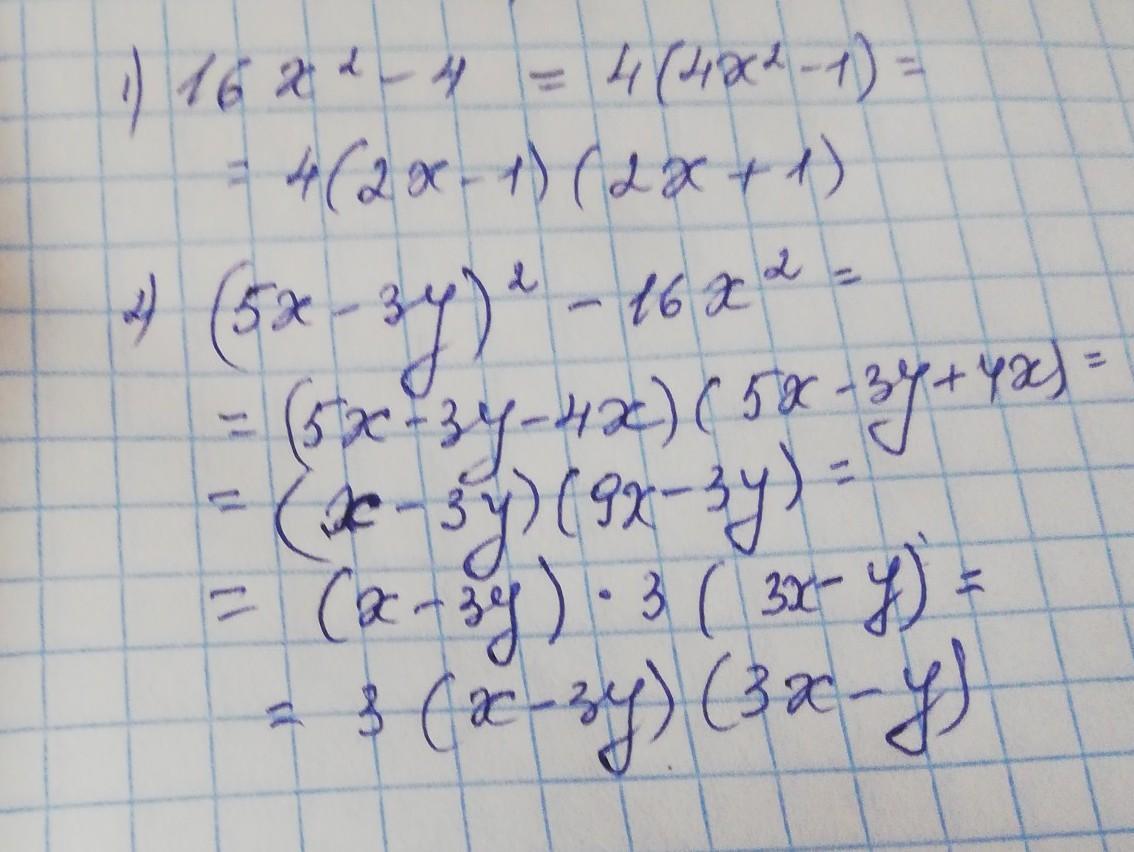 1) 16x² - 4 = 4(4x² - 1) =
= 4(2x - 1)(2x + 1)
2) (5x - 3y)² - 16x² =
= (5x - 3y - 4x)(5x - 3y + 4x) =
= (x - 3y)(9x - 3y) =
= (x - 3y) · 3(3x - y) =
= 3(x - 3y)(3x - y)